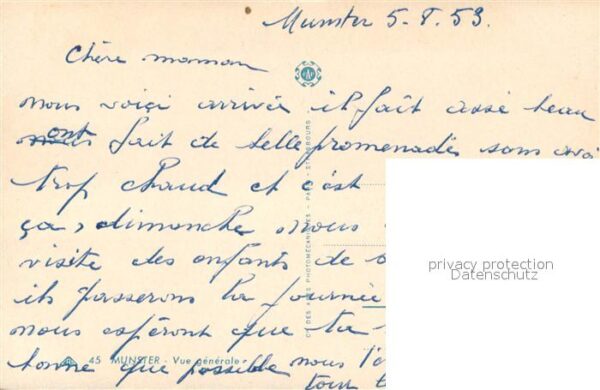 Munster 5-8.53.
Chère maman
nous voiçi arrivée il fait assé beau
ont fait de belle promenades sans avoi
trop chaud et c'est
ça, dimanche nous
visite des enfants de
ils passerons la journée
nous espéront que tu
bonne que possible nous t'
tout
Cie DES ARTS PHOTOMÉCANIQUES - PARIS - STRASBOURG
45 MUNSTER - Vue générale
privacy protection
Datenschutz